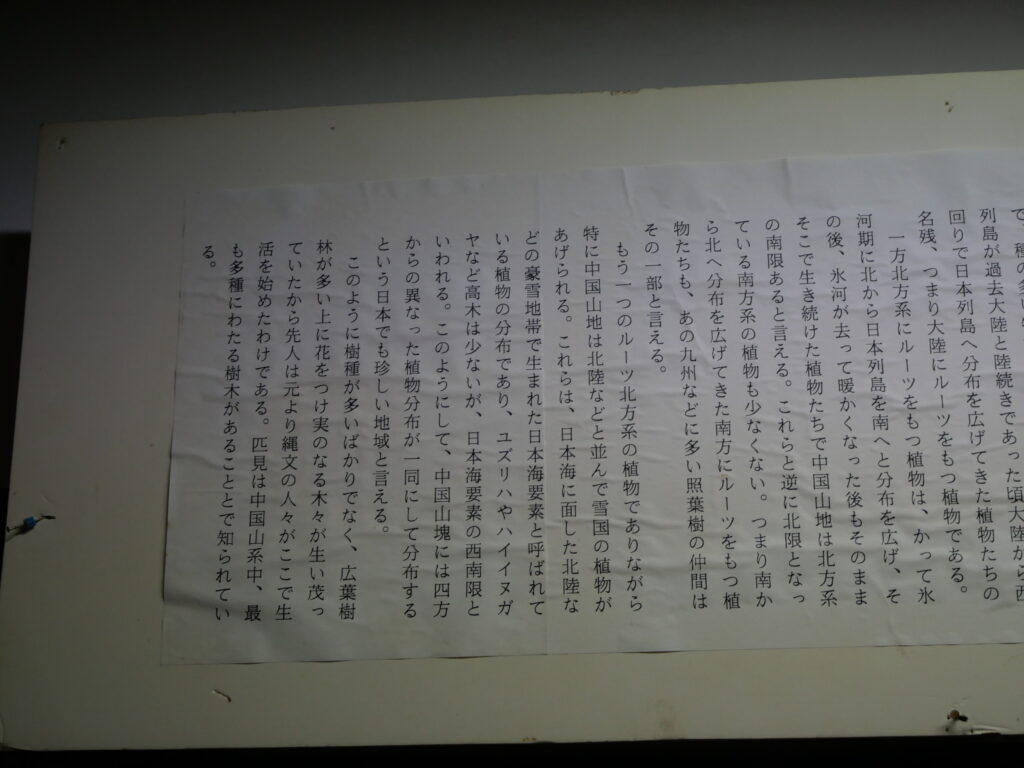 列島が過去大陸と陸続きであった頃大陸から西
回りで日本列島へ分布を広げてきた植物たちの
名残、つまり大陸にルーツをもつ植物である。
一方北方系にルーツをもつ植物は、かって氷
河期に北から日本列島を南へと分布を広げ、そ
の後、氷河が去って暖かくなった後もそのまま
そこで生き続けた植物たちで中国山地は北方系
の南限あると言える。これらと逆に北限となっ
ている南方系の植物も少なくない。つまり南か
ら北へ分布を広げてきた南方にルーツをもつ植
物たちも、あの九州などに多い照葉樹の仲間は
その一部と言える。
もう一つのルーツ北方系の植物でありながら
特に中国山地は北陸などと並んで雪国の植物が
あげられる。これらは、日本海に面した北陸な
どの豪雪地帯で生まれた日本海要素と呼ばれて
いる植物の分布であり、ユズリハやハイイヌガ
ヤなど高木は少ないが、日本海要素の西南限と
いわれる。このようにして、中国山塊には四方
からの異なった植物分布が一同にして分布する
という日本でも珍しい地域と言える。
このように樹種が多いばかりでなく、広葉樹
林が多い上に花をつけ実のなる木々が生い茂っ
ていたから先人は元より縄文の人々がここで生
活を始めたわけである。匹見は中国山系中、最
も多種にわたる樹木があることとで知られてい
る。